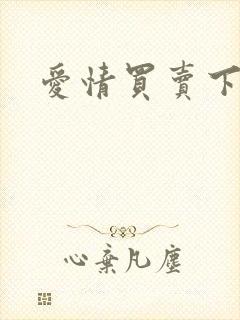 愛情買賣下
心棄凡塵